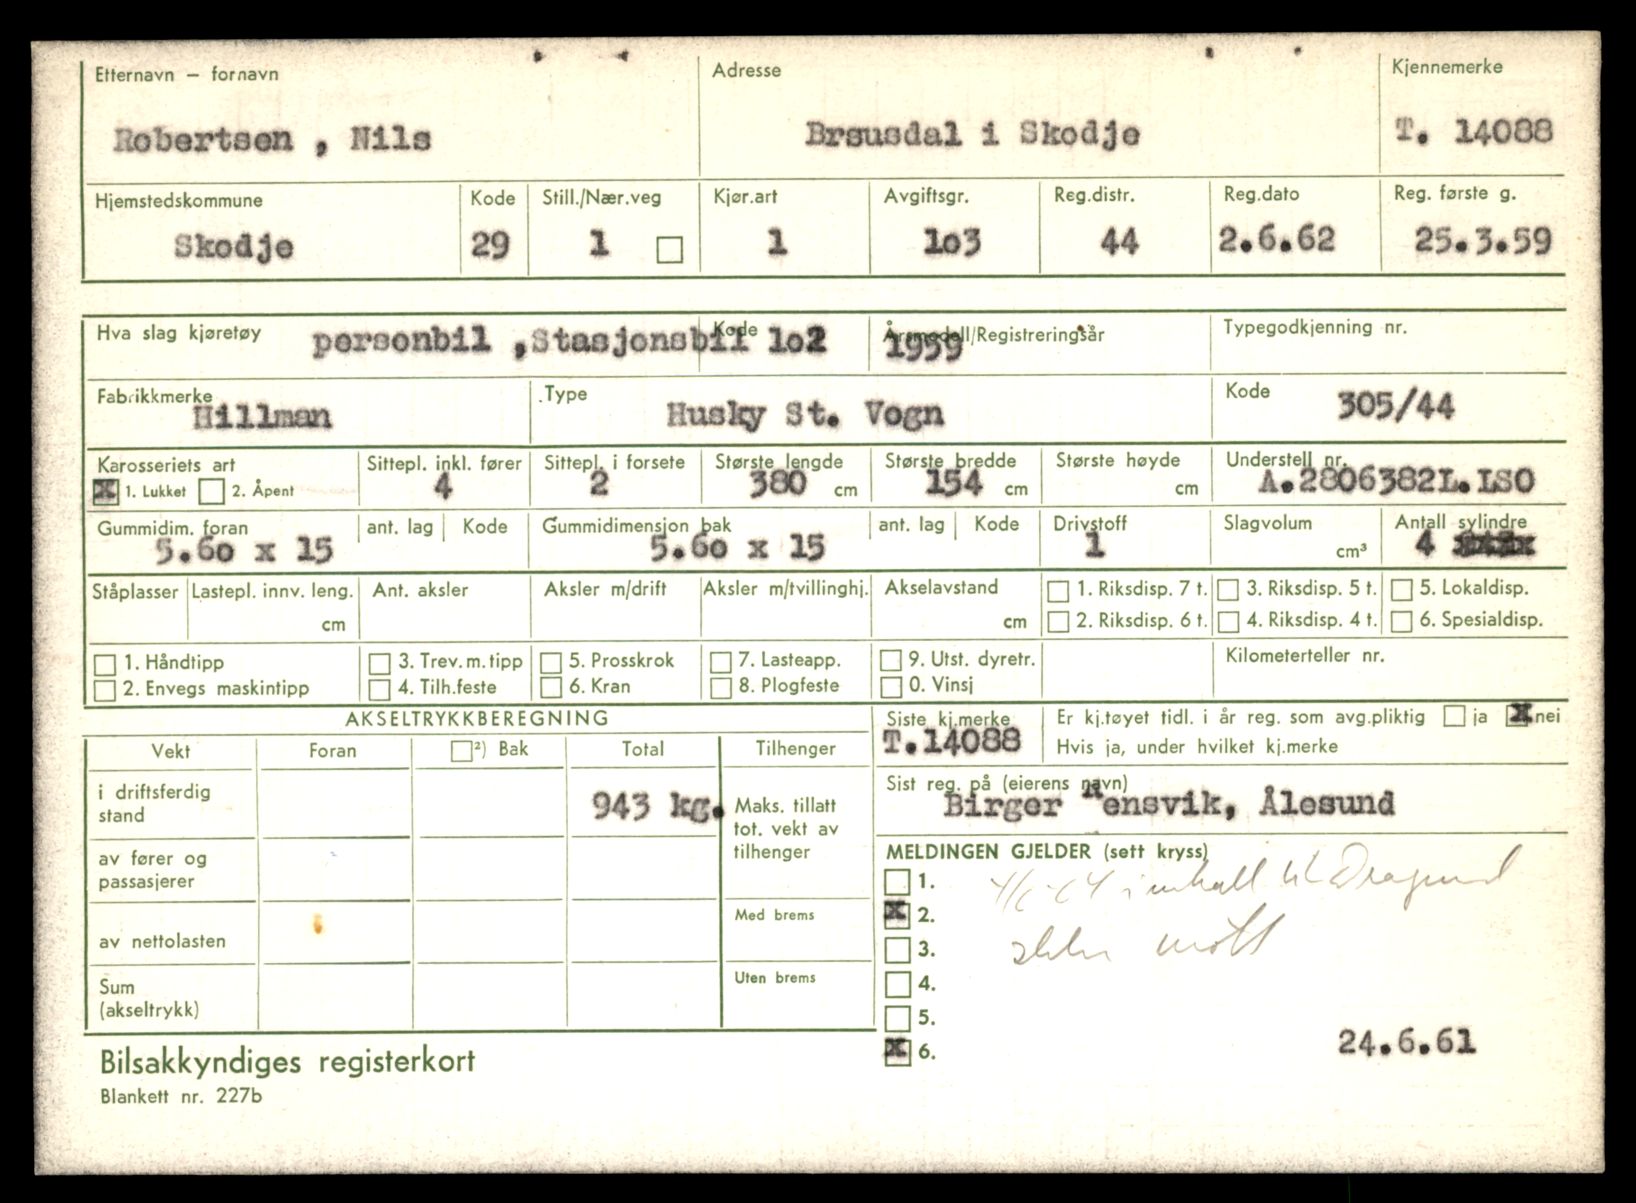 Etternavn – fornavn Adresse Kjennemerke
Robertsen , Nils Brsusdal i Skodje T. 14088
Hjemstedskommune Kode Still./Nær.veg Kjør.art Avgiftsgr. Reg.distr. Reg.dato Reg. første g.
Skodje 29 1 1 1o3 44 2.6.62 25.3.59
Hva slag kjøretøy personbil ,Stasjonsbil Kode 1o2 Årsmodell/Registreringsår 1959 Typegodkjenning nr.
Fabrikkmerke Type Kode
Hillman Husky St. Vogn 305/44
Karosseriets art Sittepl. inkl. fører Sittepl. i forsete Største lengde Største bredde Største høyde Understell nr.
X 1. Lukket 2. Åpent 4 2 380 cm 154 cm cm A.2806382L.LSO
Gummidim. foran ant. lag Kode Gummidimensjon bak ant. lag Kode Drivstoff Slagvolum Antall sylindre
5.6o x 15 5.6o x 15 1 cm³ 4
Ståplasser Lastepl. innv. leng. Ant. aksler Aksler m/drift Aksler m/tvillinghj. Akselavstand 1. Riksdisp. 7 t. 3. Riksdisp. 5 t. 5. Lokaldisp.
cm cm 2. Riksdisp. 6 t. 4. Riksdisp. 4 t. 6. Spesialdisp.
1. Håndtipp 3. Trev. m. tipp 5. Prosskrok 7. Lasteapp. 9. Utst. dyretr. Kilometerteller nr.
2. Envegs maskintipp 4. Tilh.feste 6. Kran 8. Plogfeste 0. Vinsj
AKSELTRYKKBEREGNING Siste kj.merke Er kj.tøyet tidl. i år reg. som avg.pliktig ja X nei
T.14088 Hvis ja, under hvilket kj.merke
Vekt Foran ²) Bak Total Tilhenger
Sist reg. på (eierens navn)
i driftsferdig stand 943 kg. Birger Rensvik, Ålesund
Maks. tillatt
tot. vekt av
tilhenger
av fører og
passasjerer
MELDINGEN GJELDER (sett kryss)
1.
Med brems X 2.
av nettolasten 3.
Uten brems 4.
Sum
(akseltrykk) 5.
X 6. 24.6.61
Bilsakkyndiges registerkort
Blankett nr. 227b